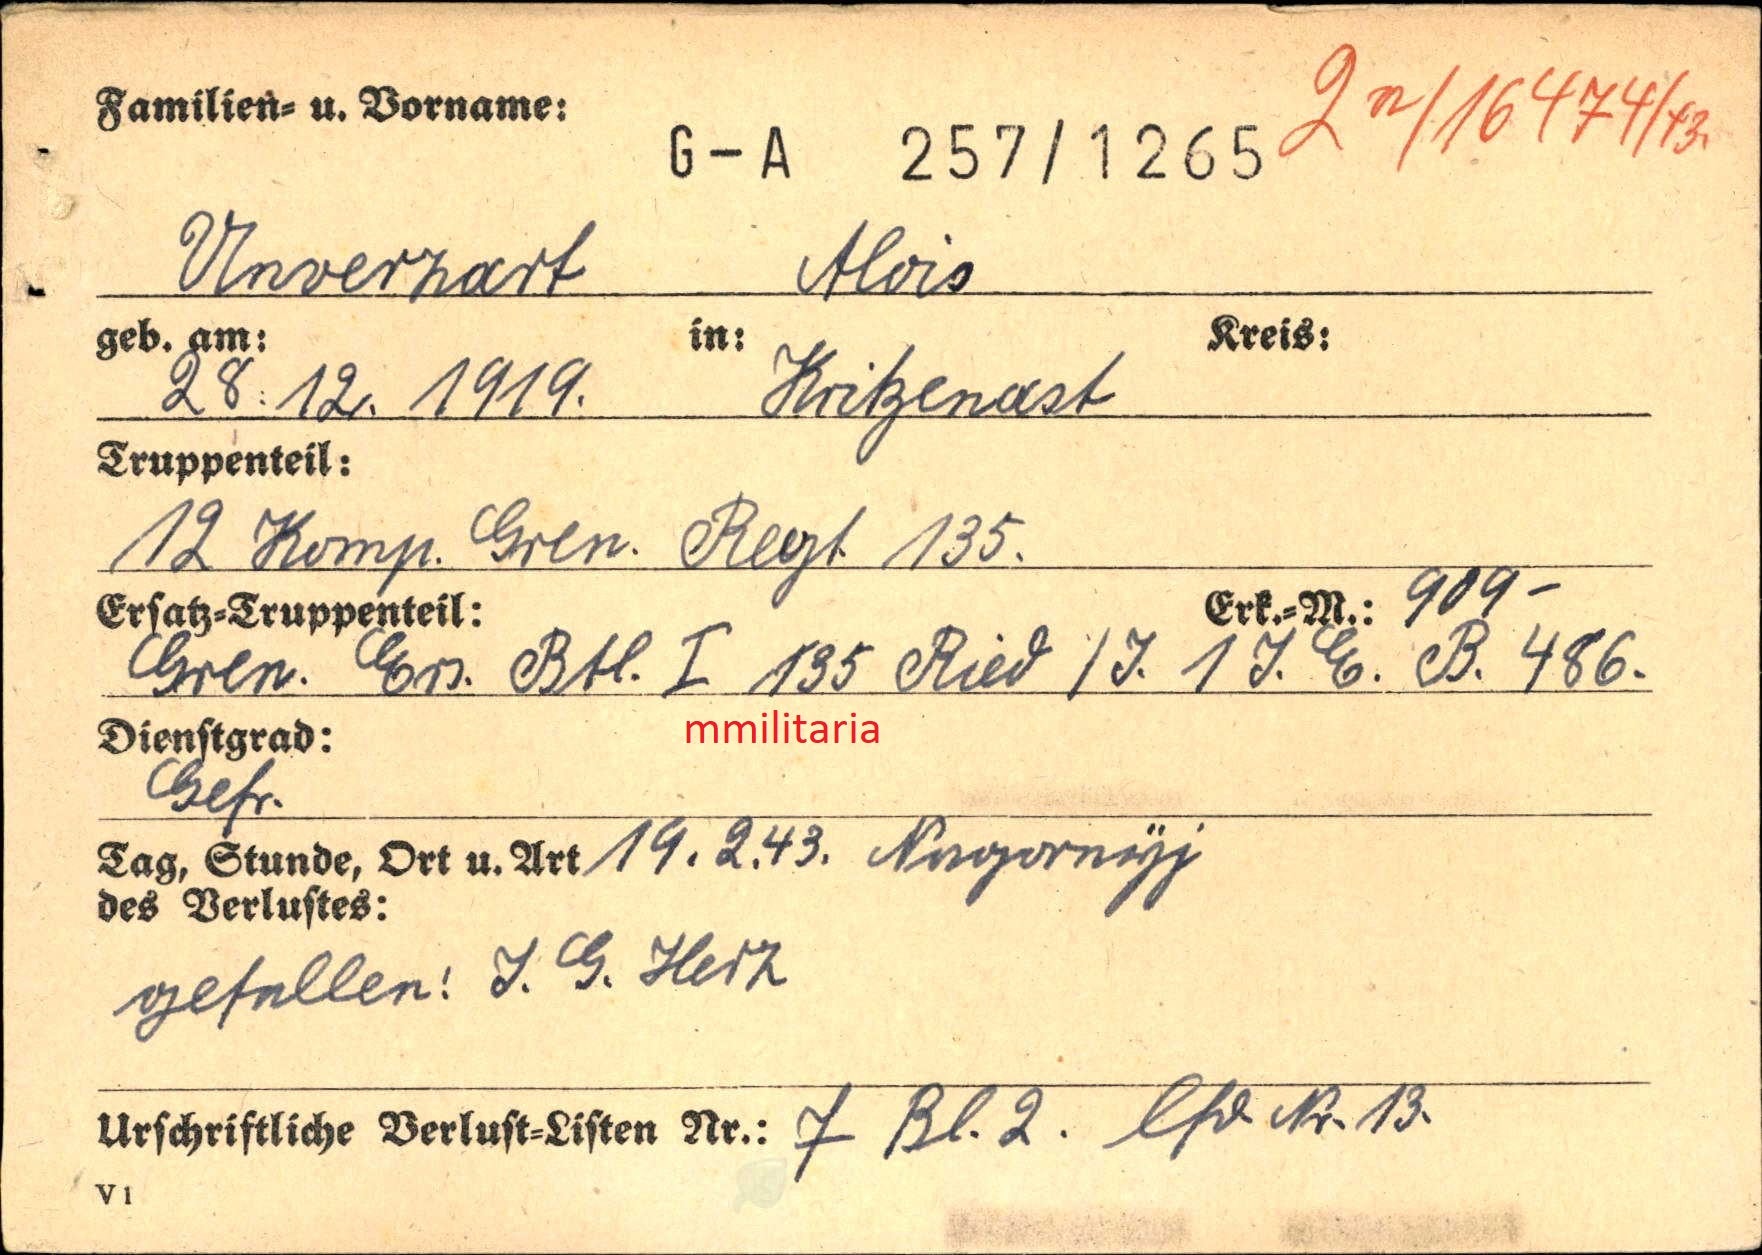 Familien- u. Vorname:
2 n/16474/43.
G-A 257/1265
Unverzart Alois
geb. am: in: Kreis:
28. 12. 1919. Kritzenast
Truppenteil:
12 Komp. Gren. Regt 135.
Ersatz-Truppenteil: Erk.-M.: 909-
Gren. Ers. Btl. I 135 Ried /J. 1 J. E. B. 486.
mmilitaria
Dienstgrad:
Gefr.
Tag, Stunde, Ort u. Art 19. 2.43. Nagornyj
des Verlustes:
gefallen! J. G. Herz
Urschriftliche Verlust-Listen Nr.: 7 Bl. 2. lfd. Nr. 13.
V 1